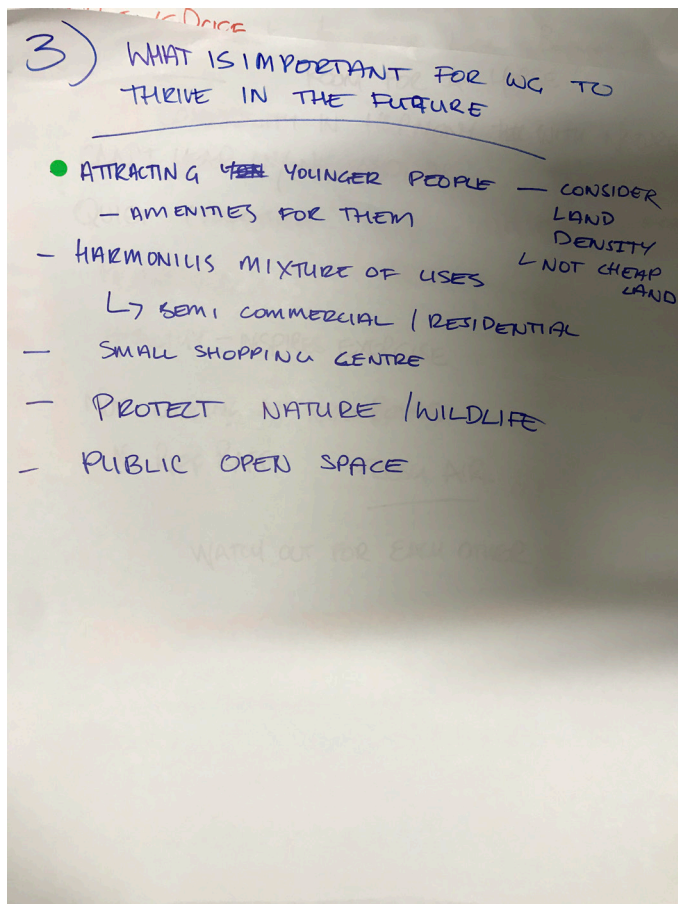 3) WHAT IS IMPORTANT FOR WG TO
THRIVE IN THE FUTURE
ATTRACTING YOUNGER PEOPLE — CONSIDER
LAND
DENSITY
— AMENITIES FOR THEM
↳ NOT CHEAP
LAND
— HARMONIUS MIXTURE OF USES
↳ SEMI COMMERCIAL / RESIDENTIAL
— SMALL SHOPPING CENTRE
— PROTECT NATURE / WILDLIFE
— PUBLIC OPEN SPACE
WATCH OUT FOR EACH OTHER